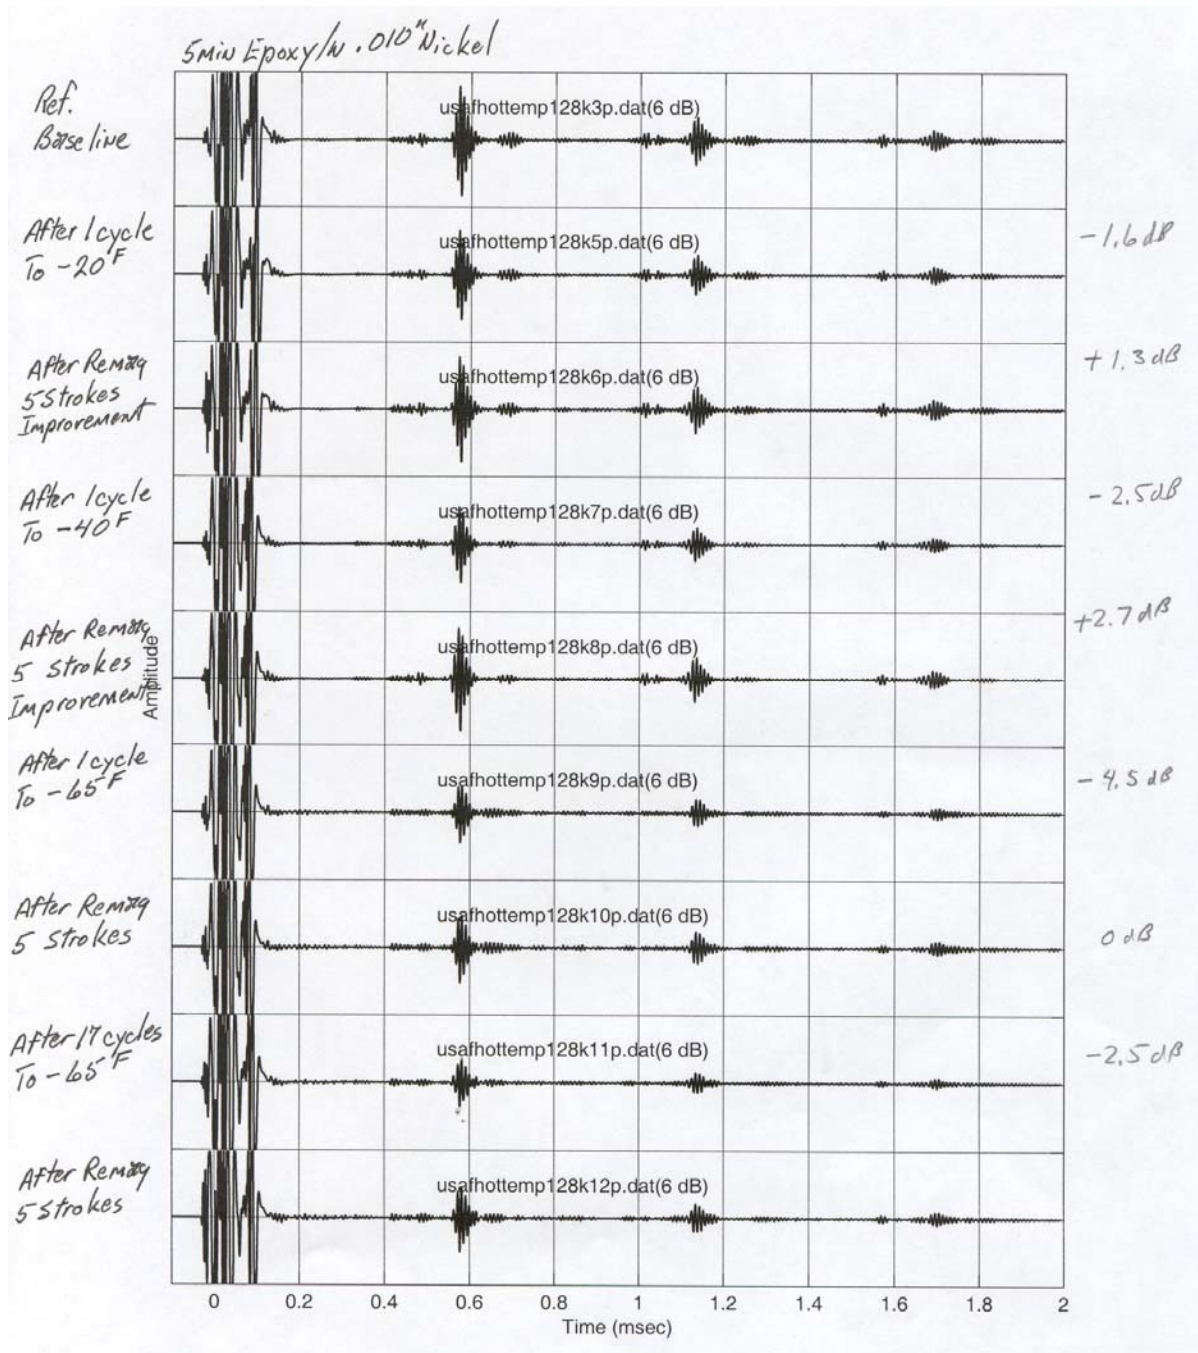 5Min Epoxy/w .010" Nickel
Ref.
Baseline
usafhottemp128k3p.dat(6 dB)
After 1cycle
To -20°F
usafhottemp128k5p.dat(6 dB)
-1.6 dB
After Remag
5 Strokes
Improvement
usafhottemp128k6p.dat(6 dB)
+1.3 dB
After 1cycle
To -40°F
usafhottemp128k7p.dat(6 dB)
-2.5dB
After Remag
5 Strokes
Improvement
usafhottemp128k8p.dat(6 dB)
+2.7 dB
Amplitude
After 1cycle
To -65°F
usafhottemp128k9p.dat(6 dB)
-4.5 dB
After Remag
5 Strokes
usafhottemp128k10p.dat(6 dB)
0 dB
After 17 cycles
To -65°F
usafhottemp128k11p.dat(6 dB)
-2.5 dB
After Remag
5 Strokes
usafhottemp128k12p.dat(6 dB)
0 0.2 0.4 0.6 0.8 1 1.2 1.4 1.6 1.8 2
Time (msec)